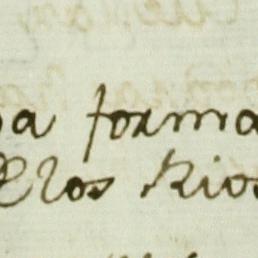 a forma
los Rios